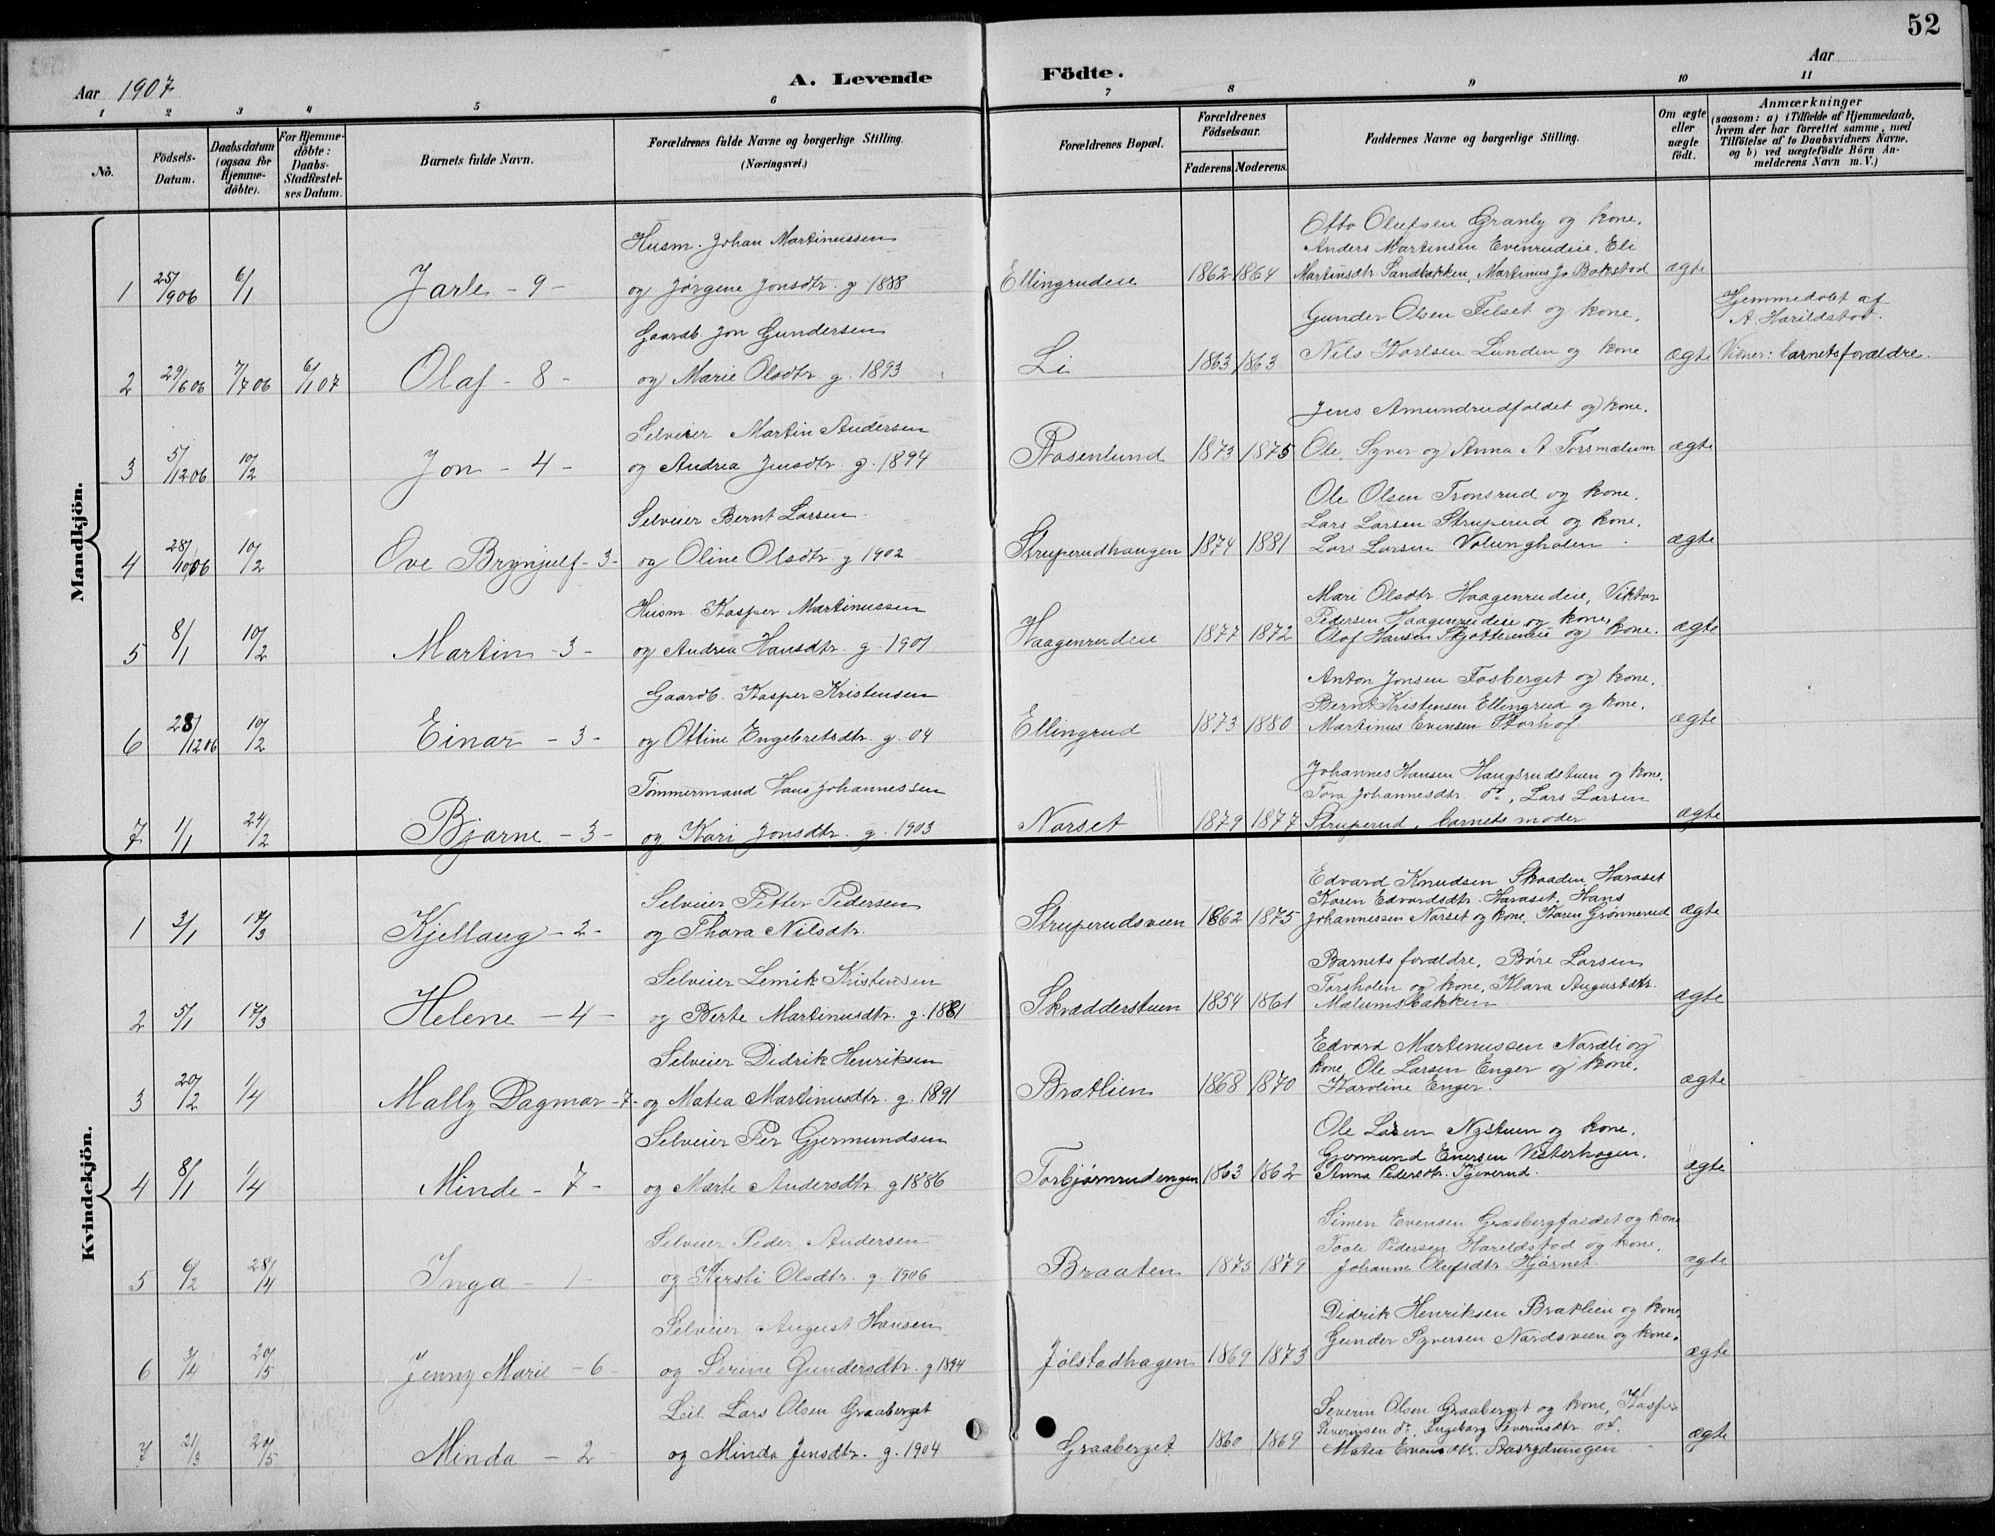 52
Aar 1907
A. Levende Födte.
Aar
1 2 3 4 5 6 7 8 9 10 11
No.
Födsels-Datum.
Daabsdatum (ogsaa for Hjemmedöbte).
For Hjemmedöbte: Daabs-Stadfestelses Datum.
Barnets fulde Navn.
Forældrenes fulde Navne og borgerlige Stilling. (Næringsvei.)
Forældrenes Bopæl.
Forældrenes Födselsaar.
Faderens. Moderens.
Faddernes Navne og borgerlige Stilling.
Om ægte eller uægte födt.
Anmærkninger (saasom: a) i Tilfælde af Hjemmedaab, hvem der har forrettet samme, med Tilföielse af to Daabsvidners Navne. og b) ved uægtefödte Börn Anmelderens Navn m. V.)
Mandkjön.
Husm. Johan Martinussen
1 25/1 906 6/1 Jarle - 9 - og Jørgine Jonsdtr. g 1888 Ellingrudeie 1862 1864
Otto Olufsen Granly og kone.
Anders Martinsen Evenrudeie, Eli
Martinsdtr Sandbakken, Martinus Jo Bakstad ægte
Gaardb. Jon Gundersen
2 29/6 06 7/7 06 6/1 07 Olaf - 8 - og Marie Olsdtr. g. 1893 Li 1863 1863
Gunder Olsen Filset og kone,
Nils Karlsen Lunden og kone ægte
Hjemmedøbt af
A. Harildstad.
Vidner: barnets forældre.
Selveier Martin Andersen
3 5/12 06 10/2 Jon - 4 - og Andrea Jensdtr. g. 1894 Rosenlund 1873 1875
Jens Amundrudfaldet og kone.
Ole, Syver og Anna A. Torsmælum ægte
Selveier Bernt Larsen.
4 28/10 06 10/2 Ove Brynjulf - 3 - og Oline Olsdtr g 1902 Struperudhaugen 1874 1881
Ole Olsen Tronsrud og kone.
Lars Larsen Struperud og kone.
Lars Larsen Volungholen ægte
Husm. Kasper Martinussen
5 8/1 10/2 Martin - 3 - og Andrea Hansdtr. g. 1901 Haagenrudeie 1877 1872
Mari Olsdtr Haagenrudeie, Viktor
Pedersen Haagenrudeie og kone,
Olaf Hansen Skjotterudeie og kone. ægte
Gaardb. Kasper Kristensen
6 28/12 06 10/2 Einar - 3 - og Ottine Engebretsdtr. g. 04 Ellingrud 1873 1880
Anton Jonsen Fosberget og kone,
Bernt Kristensen Ellingrud og kone.
Martinus Evensen Storhof. ægte
Tømmermand Hans Johannessen
7 1/1 24/2 Bjarne - 3 - og Kari Jonsdtr. g. 1903 Narset 1879 1877
Johannes Hansen Haugsrudstuen og kone,
Tora Johannesdtr. do., Lars Larsen
Struperud, barnets moder ægte
Kvindekjön.
Selveier Petter Pedersen
1 3/1 17/3 Kjellaug - 2 - og Thora Nilsdtr. Struperudsveen 1862 1875
Edvard Knudsen Skaaden, Haraset
Karen Edvardsdtr. Haraset, Hans
Johannessen Narset og kone, Karen Grønnerud ægte
Selveier Lemik Kristensen
2 5/1 17/3 Helene - 4 - og Berte Martinusdtr. g. 1881 Skrædderstuen 1854 1861
Barnets forældre, Børe Larsen
Torsholen og kone, Klara Augustdtr.
Mælumsbakken ægte
Selveier Didrik Henriksen
3 20/2 1/4 Mally Dagmar - 7 - og Matea Martinusdtr. g. 1891 Bratlien 1868 1870
Edvard Martinussen Nordli og
kone, Ole Larsen Enger og kone.
Karoline Enger. ægte
Selveier Per Gjermundsen
4 8/1 1/4 Minde - 7 - og Marte Andersdtr. g 1886 Torbjørnrudengen 1863 1862
Ole Larsen Nystuen og kone.
Gjermund Enersen Vesterhagen.
Anna Pedersdtr. Kjverud. ægte
Selveier Peder Andersen
5 6/2 28/4 Inga - 1 - og Kirsti Olsdtr. g. 1906 Braaten 1875 1879
Simen Evensen Grasbergfaldet og kone
Toale Pedersen Harildstad og kone.
Johanne Olufsdtr. Hjørnet. ægte
Selveier August Hansen
6 3/4 20/5 Jenny Marie - 6 - og Serine Gundersdtr. g 1894 Jølstadhagen 1869 1873
Didrik Henriksen Bratlien og kone,
Gunder Syversen Nordsveen og kone. ægte
Leil. Lars Olsen Graaberget
7 21/3 20/5 Minda - 2 - og Minda Jensdtr. g. 1904 Graaberget 1860 1869
Severin Olsen Graaberget og kone, Kasper
Severinsen do. Ingeborg Severinsdtr. do.
Matea Evensdtr. Aasrydningen ægte